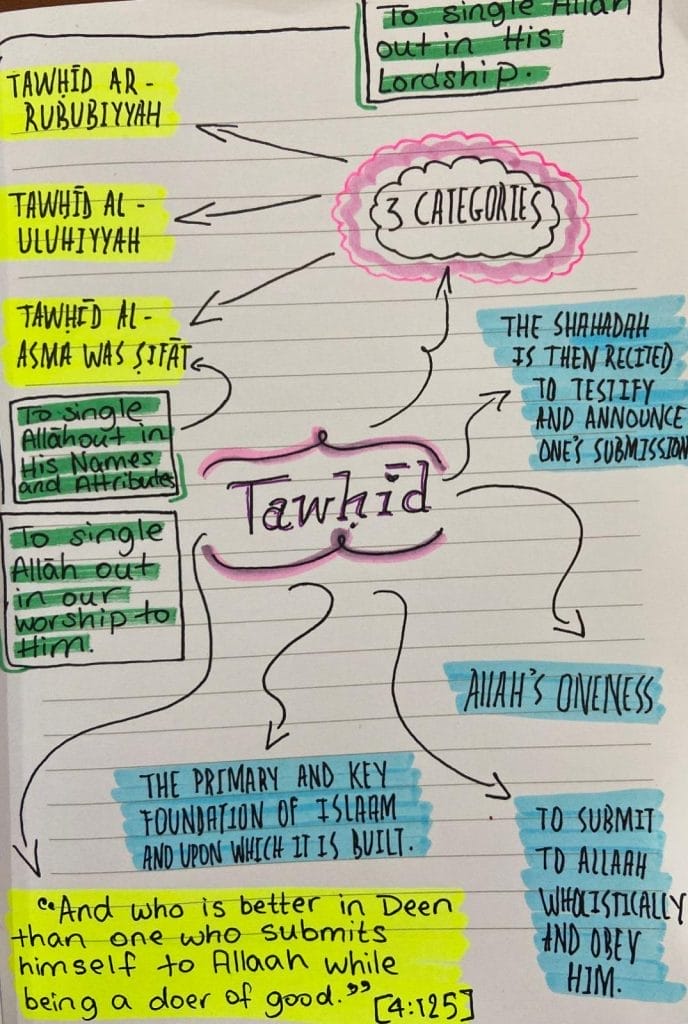 To single Allah
out in His
Lordship.
TAWḤĪD AR-
RUBUBIYYAH
3 CATEGORIES
TAWḤĪD AL-
ULUHIYYAH
TAWḤĪD AL-
ASMA WAS ṢIFĀT
THE SHAHADAH
IS THEN RECITED
TO TESTIFY
AND ANNOUNCE
ONE'S SUBMISSION
To single
Allāh out in
His Names
and Attributes
Tawḥīd
To single
Allāh out
in our
worship to
Him.
AllAH'S ONENESS
THE PRIMARY AND KEY
FOUNDATION OF ISLAAM
AND UPON WHICH IT IS BUILT.
TO SUBMIT
TO ALLAAH
WHOLISTICALLY
AND OBEY
HIM.
"And who is better in Deen
than one who submits
himself to Allaah while
being a doer of good." [4:125]